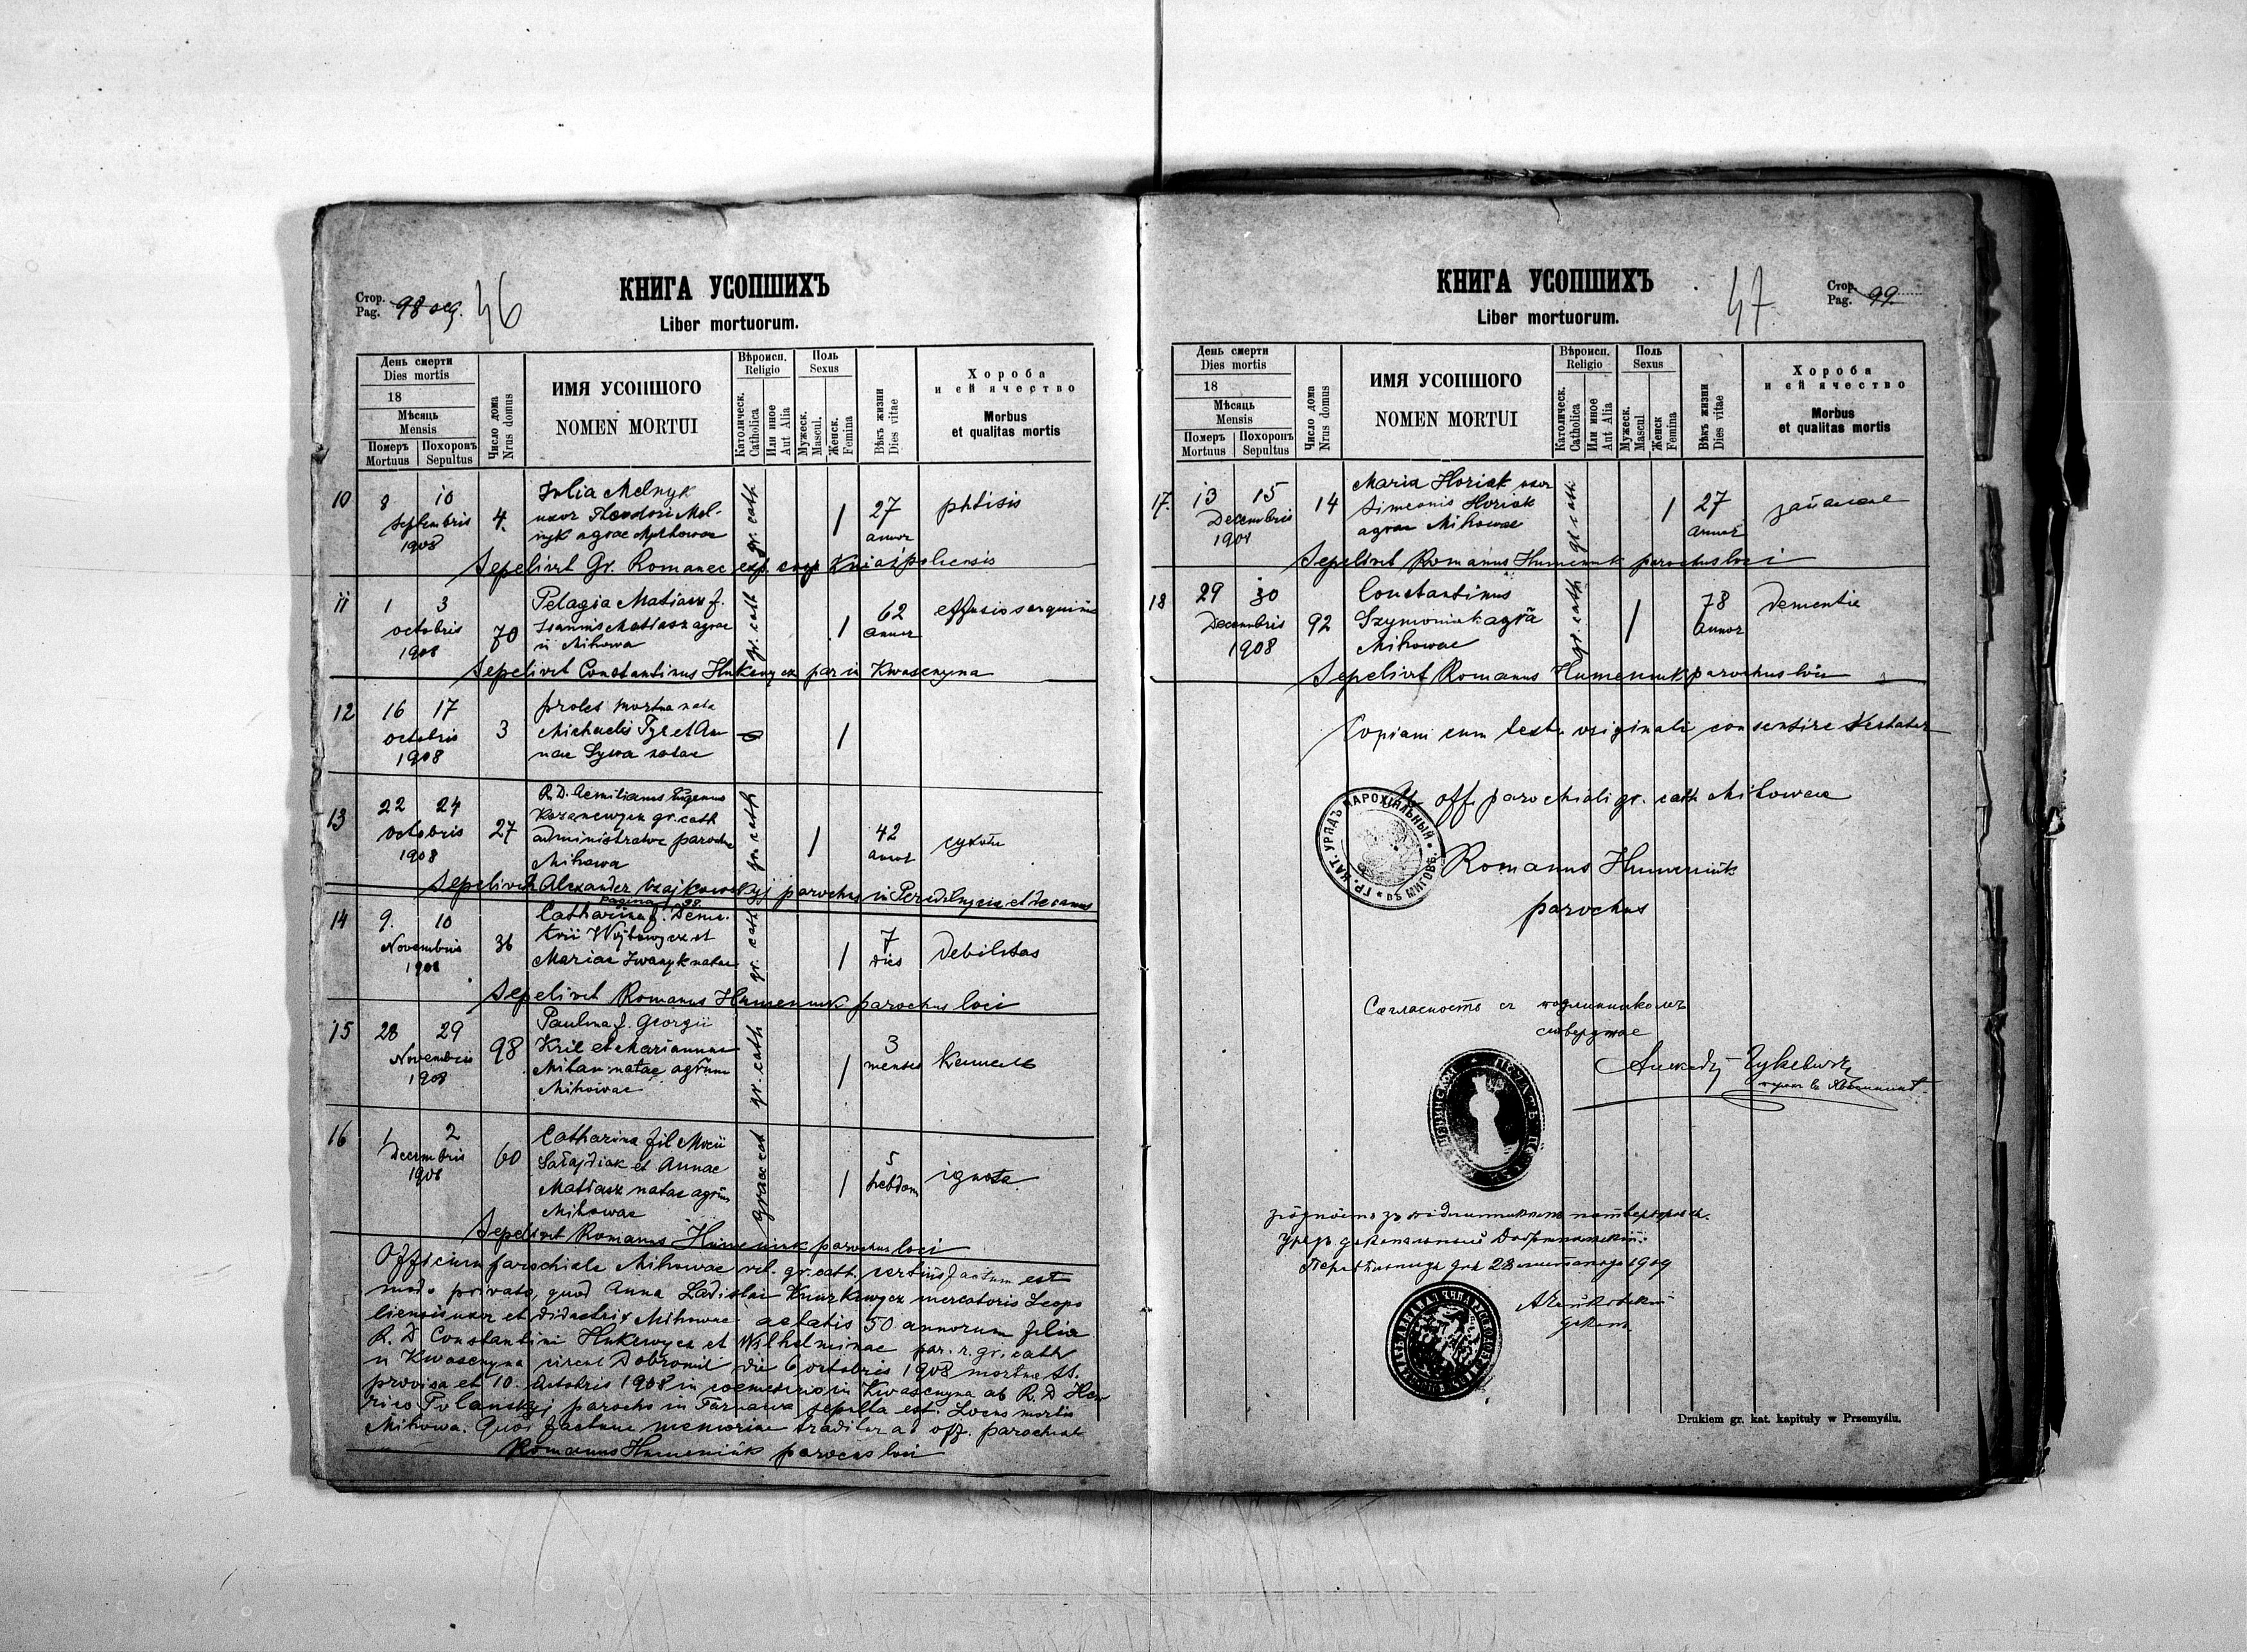 Стор.
Pag. 98 seq. 46
КНИГА УСОПШИХЪ
Liber mortuorum.
День смерти
Dies mortis
18
Мѣсяць
Mensis
Померъ
Mortuus
Похоронъ
Sepultus
Число дома
Nrus domus
ИМЯ УСОПШОГО
NOMEN MORTUI
Вѣроисп.
Religio
Католическ.
Catholica
Или иное
Aut Alia
Поль
Sexus
Мужеск.
Mascul.
Женск.
Femina
Вѣкъ жизни
Dies vitae
Хороба
и ей ячество
Morbus
et qualitas mortis
10 8 10 Septembris 1908 4. Julia Melnyk
uxor Theodori Mel-
nyk agrae Myhowae
gr. cath 1 27 annor phtisis
Sepelivit Gr. Romanec exp. Kniaźpoliensis
11 1 3 octobris 1908 70 Pelagia Matiasz f.
Joannis Matiasz agrae
in Mihowa
gr. cath 1 62 annor effusio sanguinis
Sepelivit Constantinus Hukewycz par in Kwasenyna
12 16 17 octobris 1908 3 proles mortua nata
Michaelis Tyr et An-
nae Sywa natae
1
13 22 24 octobris 1908 27 R.D. Aemilianus Eugenius
Kozanewycz gr. cath
administrator parochiae
Mihowa
gr. cath 1 42 annor сухоты
Sepelivit Alexander Czajkowskyj parochus in Peredilnycia et decanus
pagina 98
14 9. 10 Novembris 1908 36 Catharina f. Deme-
trii Wojtowycz et
Mariae Iwanyk natae
gr. cath 1 7 dies debilitas
Sepelivit Romanus Humeniuk parochus loci
15 28 29 Novembris 1908 98 Paulina f. Georgii
Kril et Mariannae
Milan natae agrum
Mihowae
gr. cath 1 3 menses кашель
16 1 2 Decembris 1908 60 Catharina fil
et Annae
Matiasz natae agrum
Mihowae
graec cat 1 5 hebdom ignota
Sepelivit Romanus Humeniuk parochus loci
Officium parochiale Mihowae rit. gr. cath. certius factum est
modo privato, quod Anna Ladislai mercatoris Leopo
liensis uxor et didactrix Mihowae aetatis 50 annorum filia
R. D Constantini Hukewycz et Wilhelminae par. r. gr. cath
in Kwasenyna circul Dobromil die 6 octobris 1908 mortua St.
provisa et 10. octobris 1908 in coemeterio in Kwasenyna ab R. D Hen
rico Polanskyj parocho in Tarnawa sepulta est. Locus mortis
Mihowa. Quod factum memoriae traditur ad off. parochial
Romanus Humeniuk parochus loci
КНИГА УСОПШИХЪ
Liber mortuorum.
47.
Стор.
Pag. 99.
День смерти
Dies mortis
18
Мѣсяць
Mensis
Померъ
Mortuus
Похоронъ
Sepultus
Число дома
Nrus domus
ИМЯ УСОПШОГО
NOMEN MORTUI
Вѣроисп.
Religio
Католическ.
Catholica
Или иное
Aut Alia
Поль
Sexus
Мужеск.
Mascul
Женск
Femina
Вѣкъ жизни
Dies vitae
Хороба
и ей ячество
Morbus
et qualitas mortis
17. 13 15 Decembris 1908 14 Maria Horiak uxor
Simeonis Horiak
agrae Mihowae
gr cath 1 27 annor запалене
Sepelivit Romanus Humeniuk parochus loci
18 29 30 Decembris 1908 92 Constantinus
Szymoniak
Mihowae
gr. cath 1 78 annor dementia
Sepelivit Romanus Humeniuk parochus loci
Copiam cum textu originali consentire testatur
off. parochiali gr. cath Mihowae
ГР. КАТ. УРЯДЪ ПАРОХІЯЛЬНЫЙ ВЪ МИГОВѢ
Romanus Humeniuk
parochus
Согласность съ подлинникомъ
стверджае
28 1909
декан
Drukiem gr. kat. kapituły w Przemyślu.